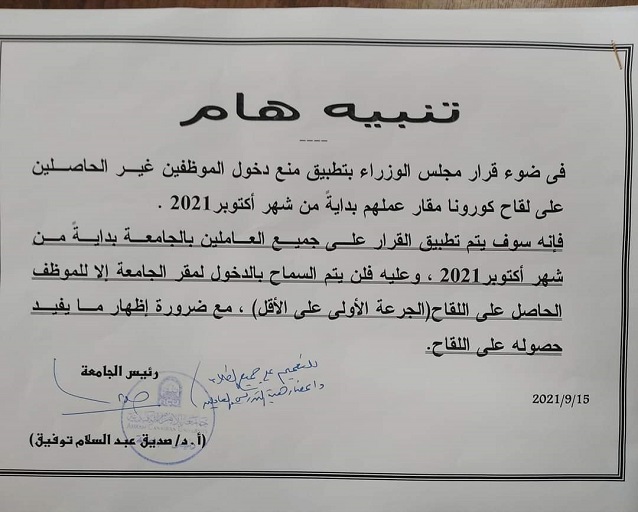 تنبيه هام
----
فى ضوء قرار مجلس الوزراء بتطبيق منع دخول الموظفين غير الحاصلين
على لقاح كورونا مقار عملهم بدايةً من شهر أكتوبر2021 .
فإنه سوف يتم تطبيق القرار على جميع العاملين بالجامعة بدايةً من
شهر أكتوبر2021 ، وعليه فلن يتم السماح بالدخول لمقر الجامعة إلا للموظف
الحاصل على اللقاح(الجرعة الأولى على الأقل) ، مع ضرورة إظهار ما يفيد
حصوله على اللقاح.
رئيس الجامعة
للتعميم على جميع الطلاب
وأعضاء هيئة التدريس والعاملين
2021/9/15
(أ.د/ صديق عبد السلام توفيق)